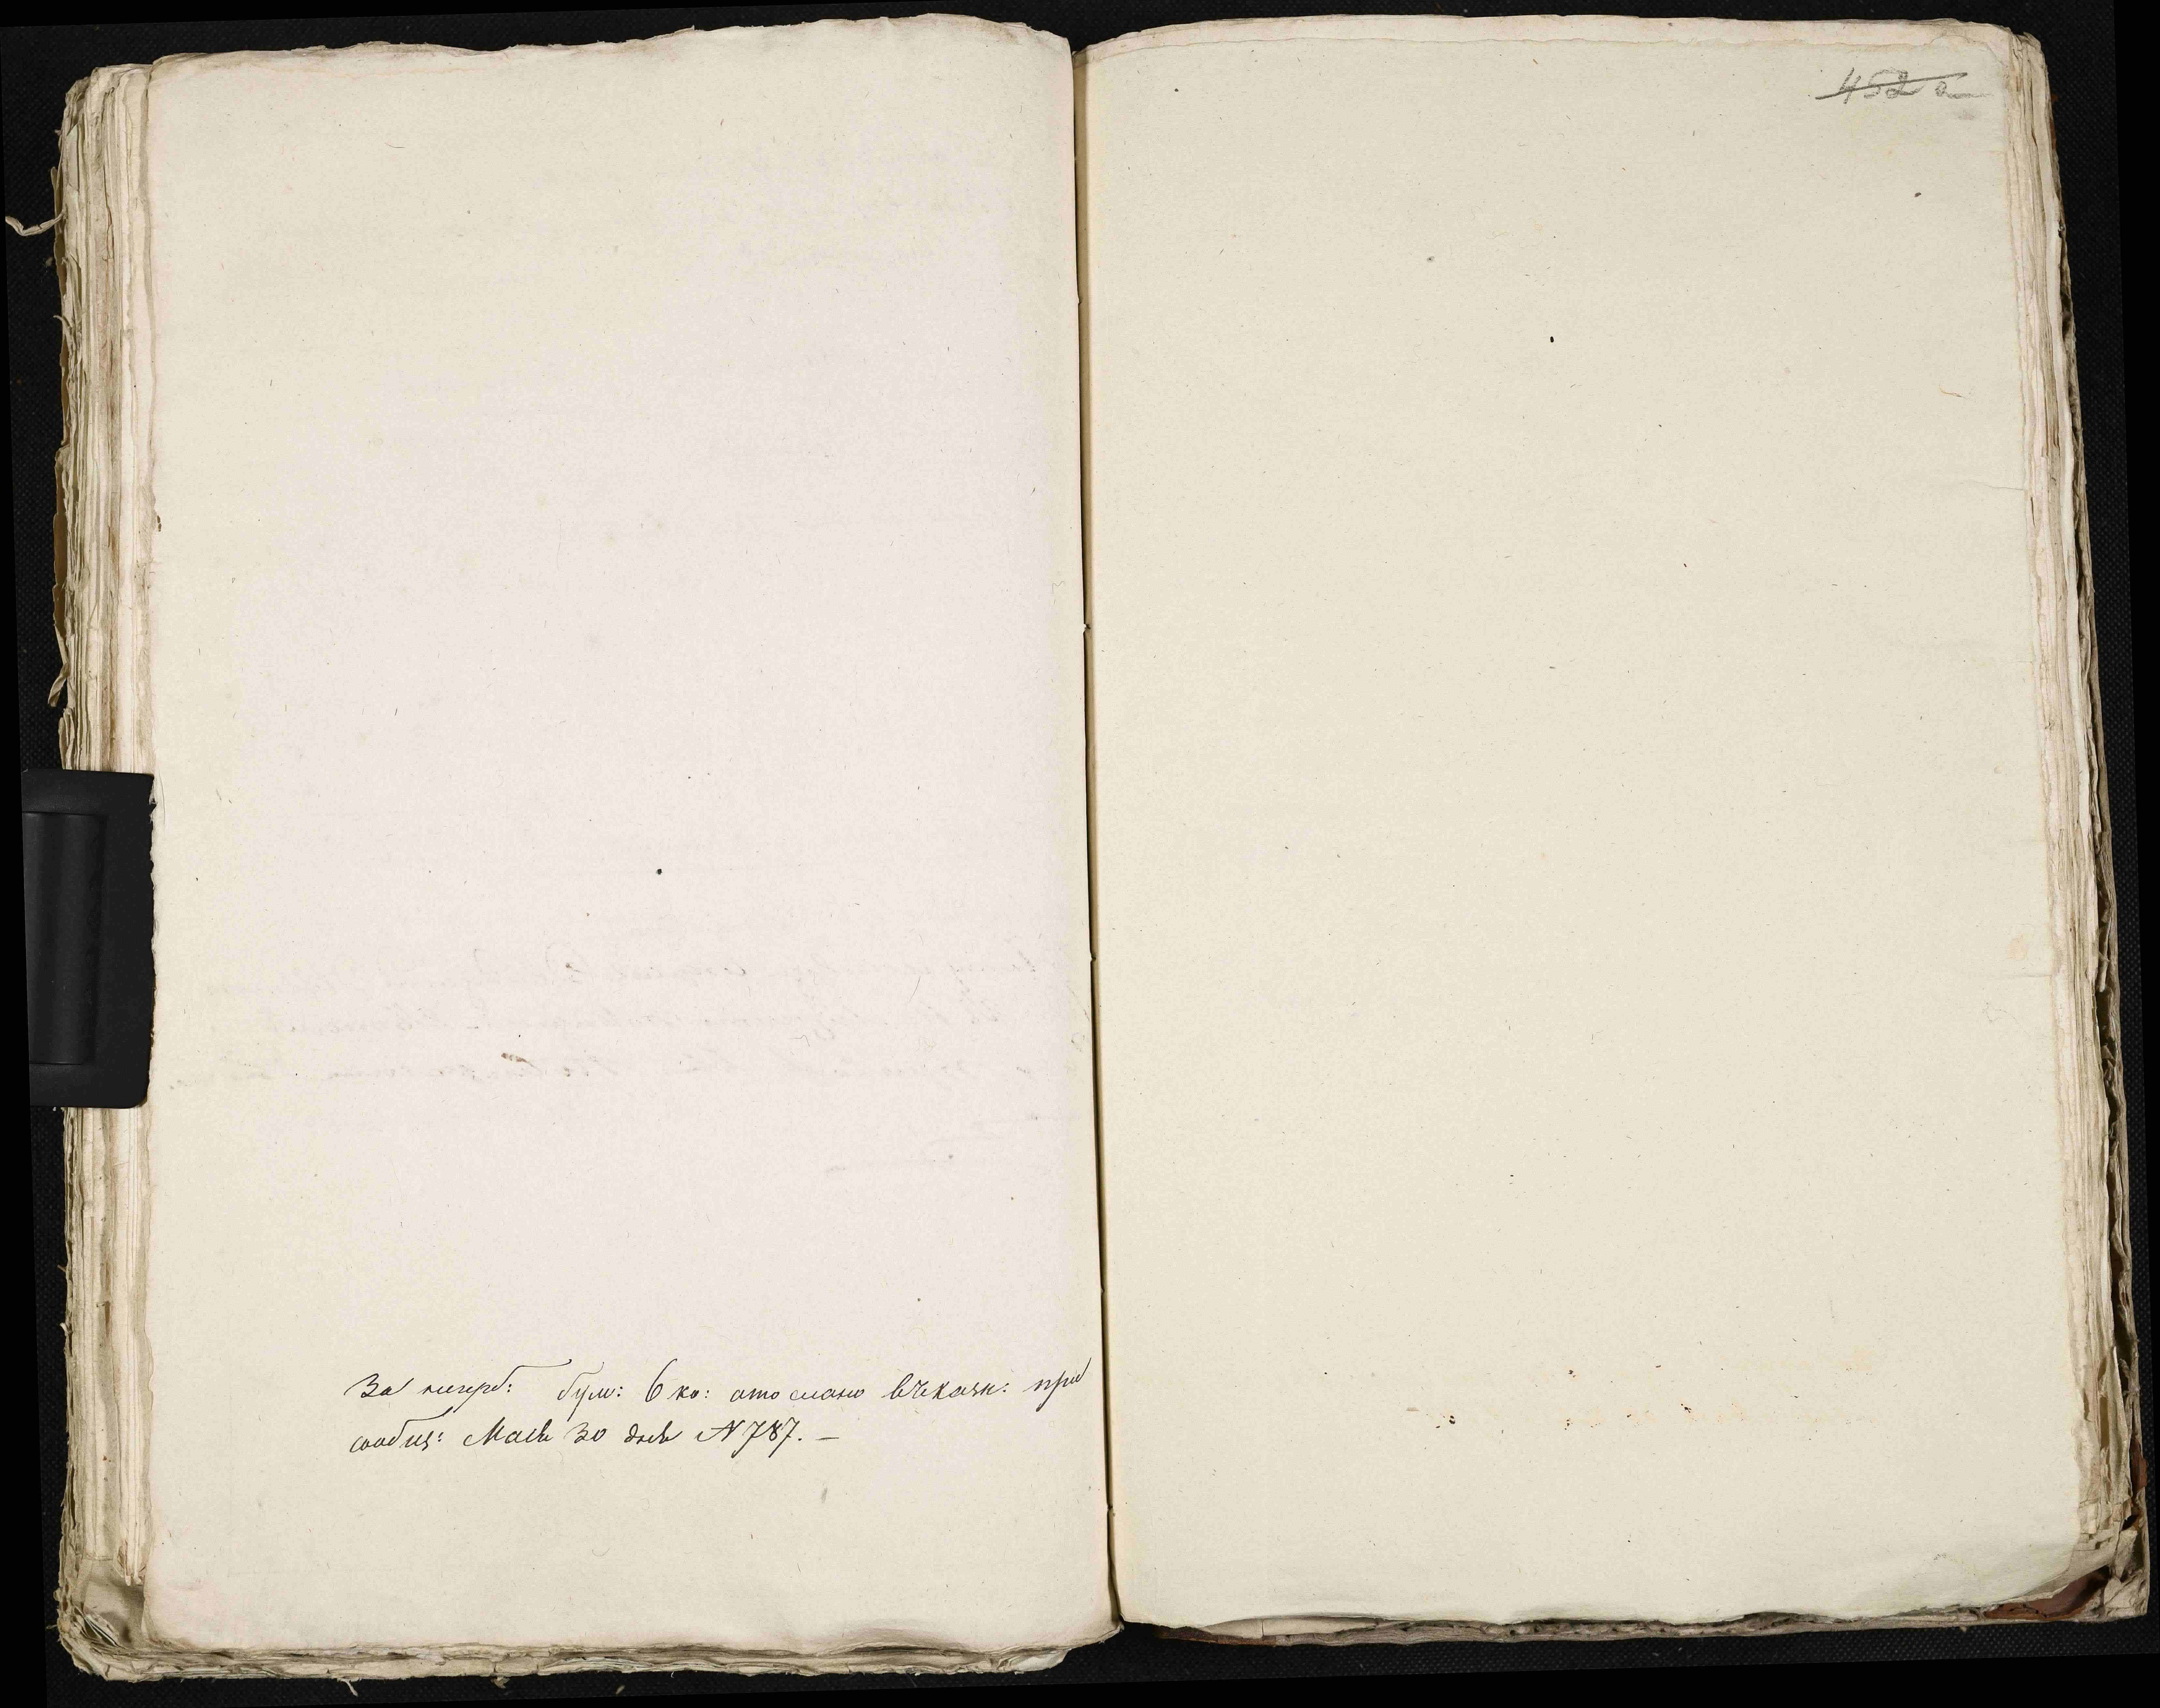 452 а
За негерб: бум: 6 ко: отослано въ казн: при
сообщ: Маія 30 дня №787. —